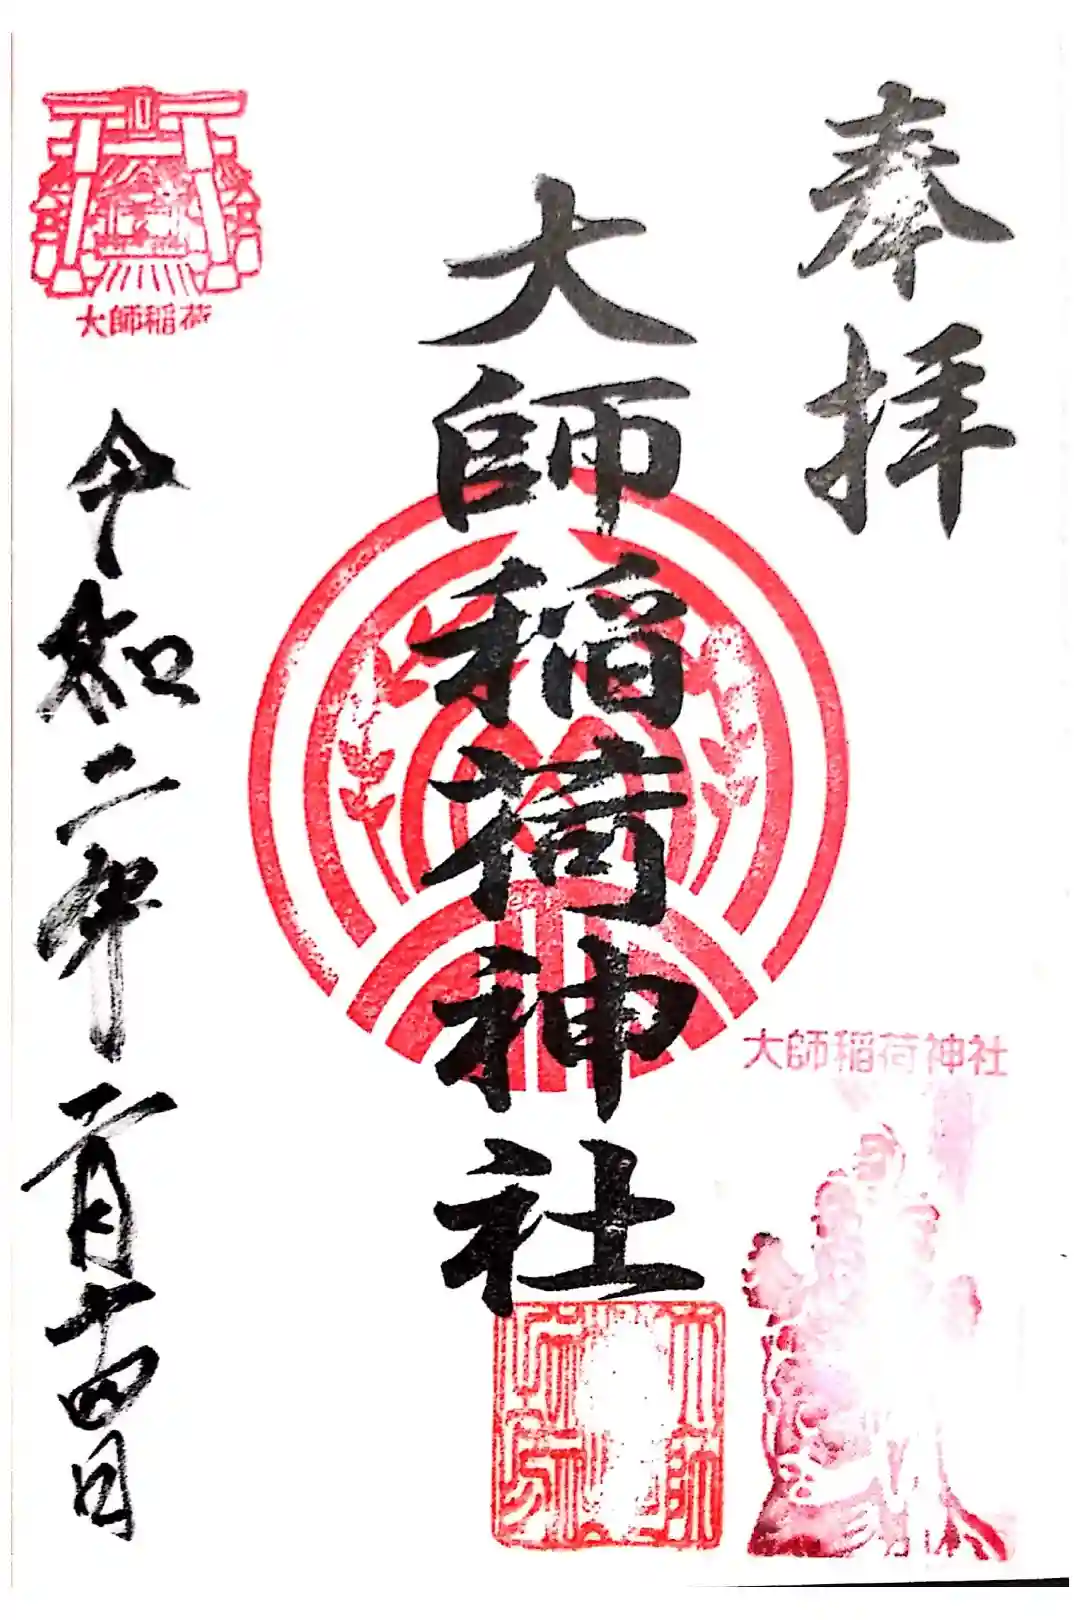 奉拝
大師稲荷神社
大師稲荷神社
大師稲荷
令和二年二月十四日